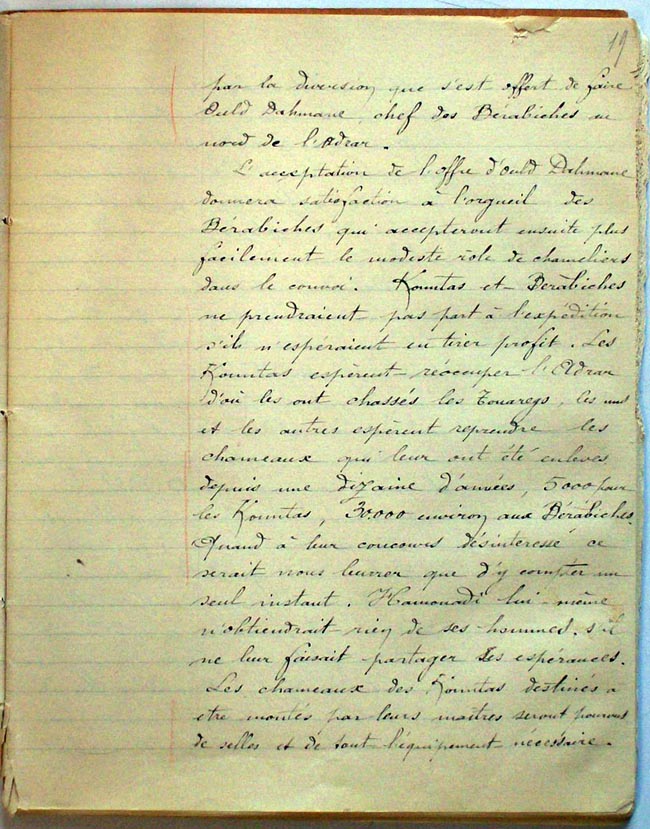 19
par la diversion que s'est offert de faire
Ould Dahmane, chef des Bérabiches au
nord de l'Adrar.
L'acceptation de l'offre d'Ould Dahmane
donnera satisfaction à l'orgueil des
Bérabiches qui accepteront ensuite plus
facilement le modeste rôle de chameliers
dans le convoi. Kountas et Bérabiches
ne prendraient pas part à l'expédition
s'ils n'espéraient en tirer profit. Les
Kountas espèrent réoccuper l'Adrar
d'où les ont chassés les Touaregs, les uns
et les autres espèrent reprendre les
chameaux qui leur ont été enlevés
depuis une dizaine d'années, 5000 pour
les Kountas, 30.000 environ aux Bérabiches.
Quand à leur concours désintéressé ce
serait nous leurrer que d'y compter un
seul instant. Hamouadi lui-même
n'obtiendrait rien de ses hommes, s'il
ne leur faisait partager ses espérances.
Les chameaux des Kountas destinés a
etre montés par leurs maîtres seront pourvus
de selles et de tout l'équipement nécessaire.